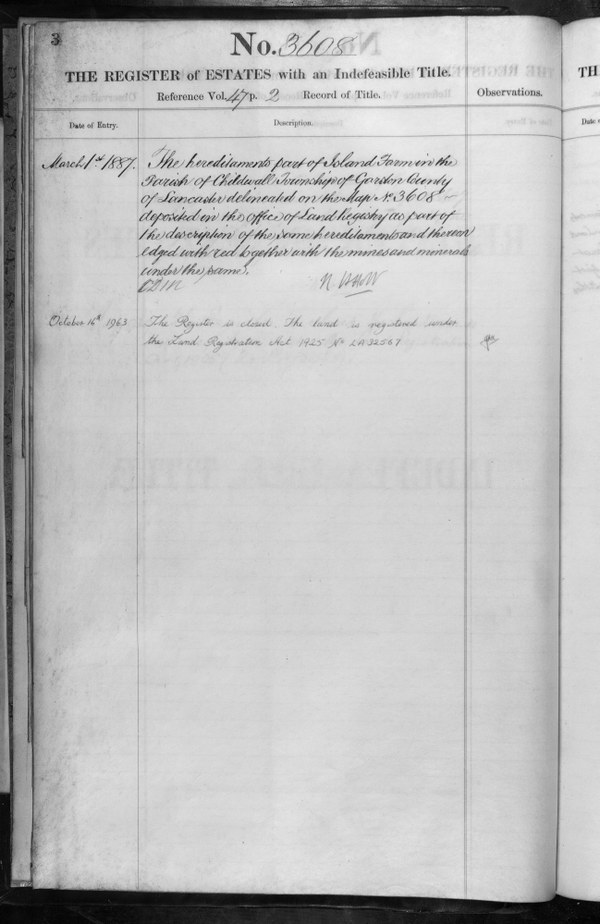 3
No. 3608
THE REGISTER of ESTATES with an Indefeasible Title.
Reference Vol. 47 p. 2 Record of Title.
Observations.
Date of Entry.
Description.
March 1st 1887.
The hereditaments part of Island Farm in the
Parish of Childwall Township of Garston County
of Lancaster delineated on the Map No. 3608
deposited in the office of Land Registry as part of
the description of the same hereditaments and thereon
edged with red together with the mines and minerals
under the same.
October 14th 1963
The Register is closed. The land is registered under
the Land Registration Act 1925 No LA32567
TH
Date